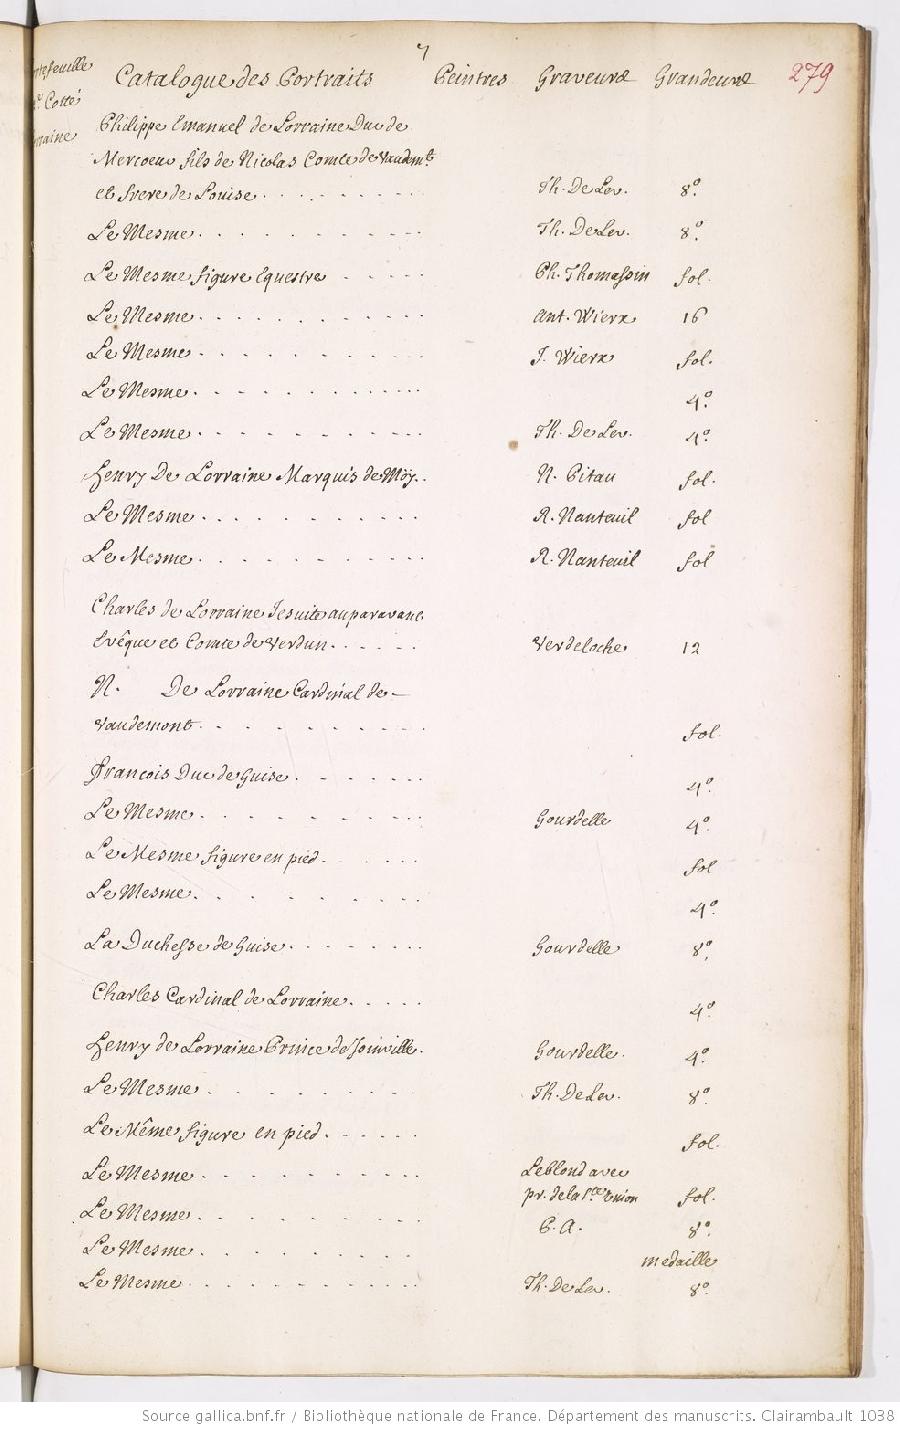 7
279
Catalogue des Portraits Peintres Graveurs Grandeurs
Philippe Emanuel de Lorraine Duc de
Mercoeur fils de Nicolas Comte de Vaudemt
et frere de Louise . . . . . . . . . Th. De Leu. 8º.
Le Mesme . . . . . . . . . . . Th. De Leu. 8º.
Le Mesme figure Equestre . . . . . Ph. Thomassin fol.
Le Mesme . . . . . . . . . . . Ant. Wierx 16
Le Mesme . . . . . . . . . . J. Wierx fol.
Le Mesme . . . . . . . . . . . . 4º.
Le Mesme . . . . . . . . . . Th. De Leu. 4º.
Henry De Lorraine Marquis de Moÿ . . N. Pitau fol.
Le Mesme . . . . . . . . . . R. Nanteuil fol
Le Mesme . . . . . . . . . . R. Nanteuil fol
Charles de Lorraine Jesuite auparavant
Evêque et Comte de Verdun . . . . . Verdeloche 12
N. De Lorraine Cardinal de
Vaudemont . . . . . . . . . . fol.
François Duc de Guise . . . . . . 4º.
Le Mesme . . . . . . . . . . Gourdelle 4º.
Le Mesme figure en pied . . . . . fol
Le Mesme . . . . . . . . . 4º.
La Duchesse de Guise . . . . . . . Gourdelle 8º.
Charles Cardinal de Lorraine . . . . . 4º.
Henry de Lorraine Prince de Joinville . Gourdelle. 4º.
Le Mesme . . . . . . . . Th. De Leu. 8º.
Le Même figure en pied . . . . . . fol.
Le Mesme . . . . . . . . . . Leblond avec
pr. de la Ste Union fol.
Le Mesme . . . . . . . . . P. A. 8º.
Le Mesme . . . . . . . . . medaille
Le Mesme . . . . . . . . . . . Th. De Leu. 8º.
Source gallica.bnf.fr / Bibliothèque nationale de France. Département des manuscrits. Clairambault 1038